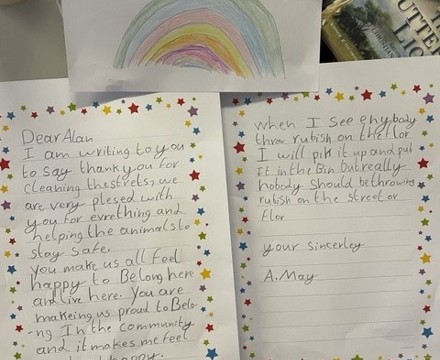 Dear Alan
I am writing to you
to say thank you for
cleaning the strets, we
are very plesed with
you for evrething and
helping the animals to
stay safe.
you make us all feel
happy to Belong here
and live here. You are
makeing us proud to Belo-
-ng In the community
and it makes me feel
happy.
when I see enybody
throw rubish on the flor
I will pik it up and put
it in the Bin but really
nobody should be throwing
rubish on the street or
flor
your sincerley
A. May
UTTE